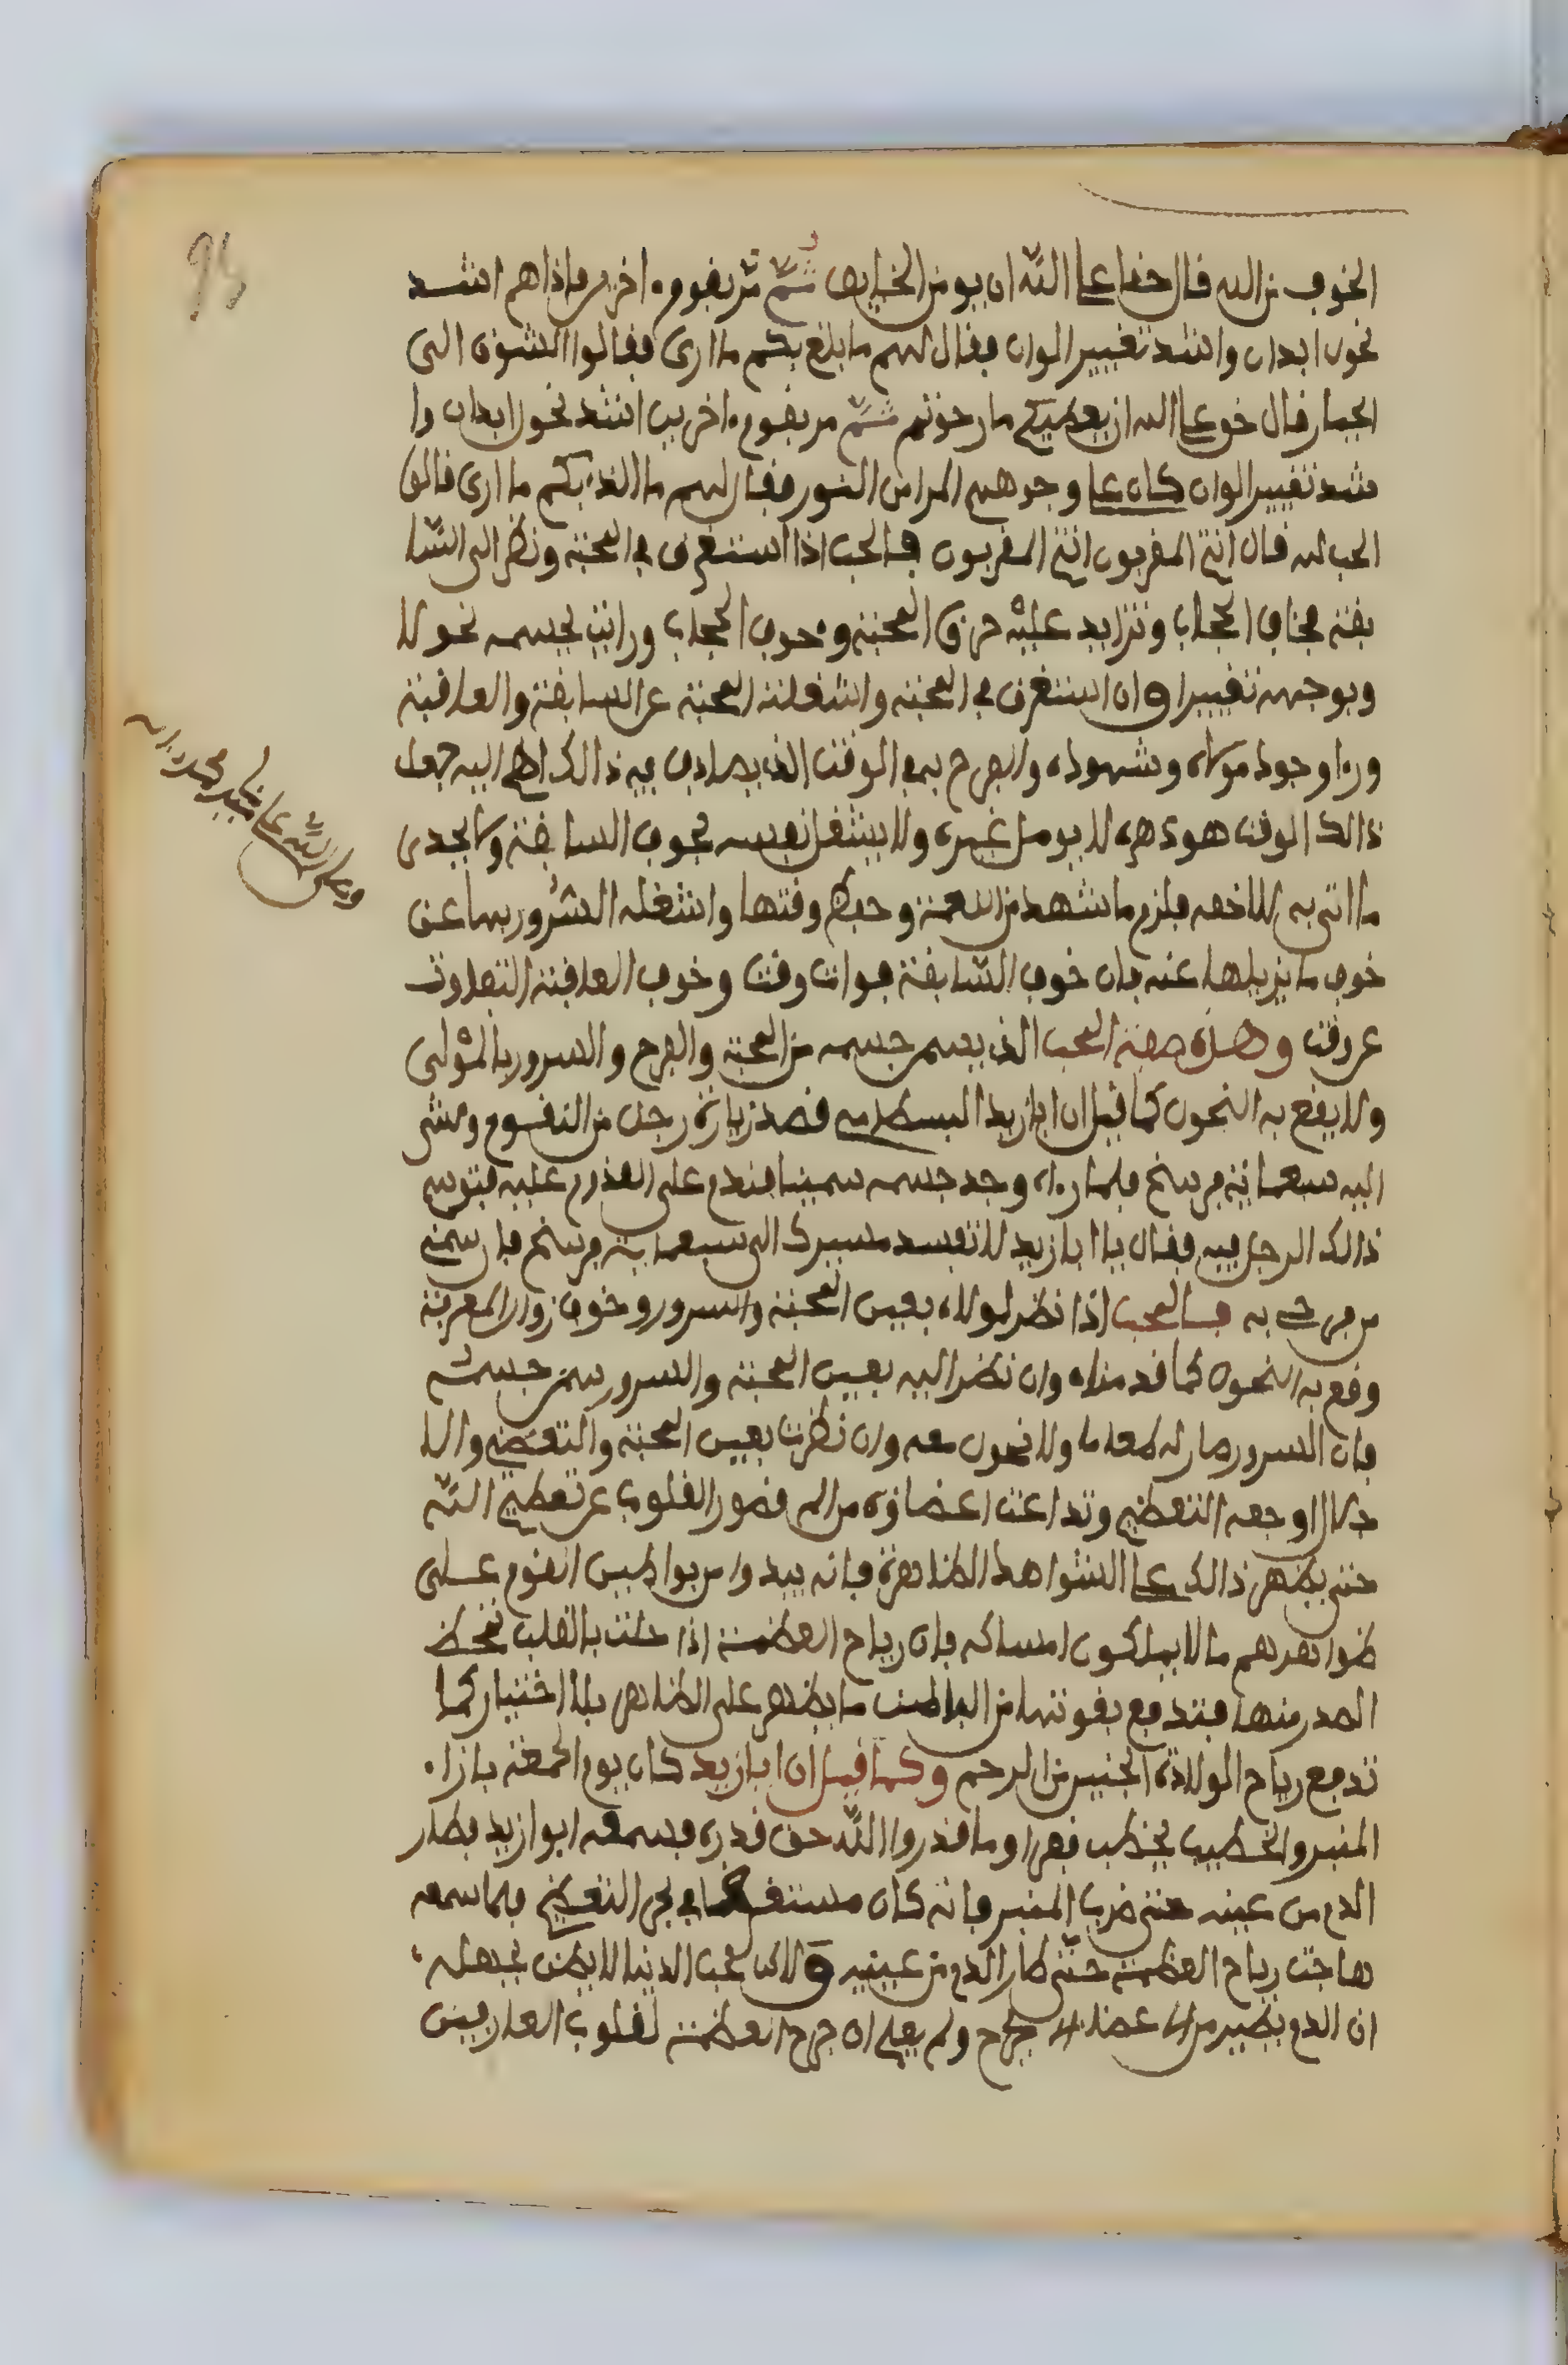 الخوف من الله قال حقا على الله ان يومن الخايف ثم مر بقوم ءاخرين فاذا هم اشد
نحول ابدان واشد تغيير الوان فقال لهم ما بلغ بكم ما ارى فقالوا الشوق الى
الجبار قال حق على الله ان يعطيكم ما رجوتم ثم مر بقوم ءاخرين اشد نحول ابدان وا
شد تغيير الوان كان على وجوههم المراءى النور فقال لهم ما الذي بكم ما ارى قالوا
الحب لله قال انتم المقربون انتم المقربون فالمحب اذا استغرق في المحبة ونظر الى السا
بقة مخاف الحجاب وتزايد عليه حرق المحبة وخوف الحجاب ورايت لجسمه نحولا
وبوجهه تغييرا وان استغرق في المحبة واشغلته المحبة عن السابقة والعاقبة
وراء وجود مولاه وشهوده والفرح بهم الوقت الذي يصادف فيه ذالك اهم اليه جعل
ذالك الوقت هو دهره لا يومل غيره ولا يشغل نفسه بخوف السابقة ولا يجدى
ما اتى به اللاحقة فلزم ما شهد من النعمة وحفظ وقتها واشغله السرور بها عن
خوف ما يزيلها عنه فان خوف السابقة فوات وقت وخوف العاقبة التفاوت
عن وقت وهذه صفة المحب الذي يسمن جسمه من المحبة والفرح والسرور بالمولى
ولا يقع به النحول كما قيل ان ابا زيد البسطامي قصد زيارة رجل من القوم ومشى
اليه سبعماية فرسخ فلما رءاه وجد جسمه سمينا فندم على القدوم عليه فتوسم
ذالك الرجل فيه فقال يا ابا زيد لا تفسد مسيرك الى سبعماية فرسخ فان سمني
من فرحي به فالمحب اذا نظر لمولاه بعين المحبة والسرور وخوف زوال المعرفة
وقع به النحول كما قدمناه وان نظر اليه بعين المحبة والسرور سمن جسمه
فان السرور صار له طعاما ولا نحول معه وان نظرت بعين المحبة والتعظيم والا
جلال اوجعه التعظيم وتداعت اعضاؤه من الم قصور القلوب عن تعظيم الله
حتى يظهر ذالك على الشواهد الظاهرة فانه يبدوا من بواطين القوم على
ظواهرهم ما لا يملكون امساكه فان رياح العظمة اذا حلت بالقلب
الصدر منها فتدفع بقوتها من الباطن ما يظهر على الظاهر بلا اختيار كما
تدفع رياح الولادة الجنين من الرحم وكما قيل ان ابا زيد كان يوم الجمعة بازاء
المنبر والخطيب يخطب فقرا وما قدروا الله حق قدره فسمعه ابوا زيد فطار
الدم من عينه حتى ضرب المنبر فانه كان مستغرقا في بحر التعظيم فلما سمعه
هاجت رياح العظمة حتى طار الدم من عينيه ولاكن محب الدنيا لا يظن بجهله
ان الدم يطير من الاعضاء الا بجرح ولم يعلم ان جرح العظمة لقلوب العارفين
وصلى الله على سيدنا محمد وءاله